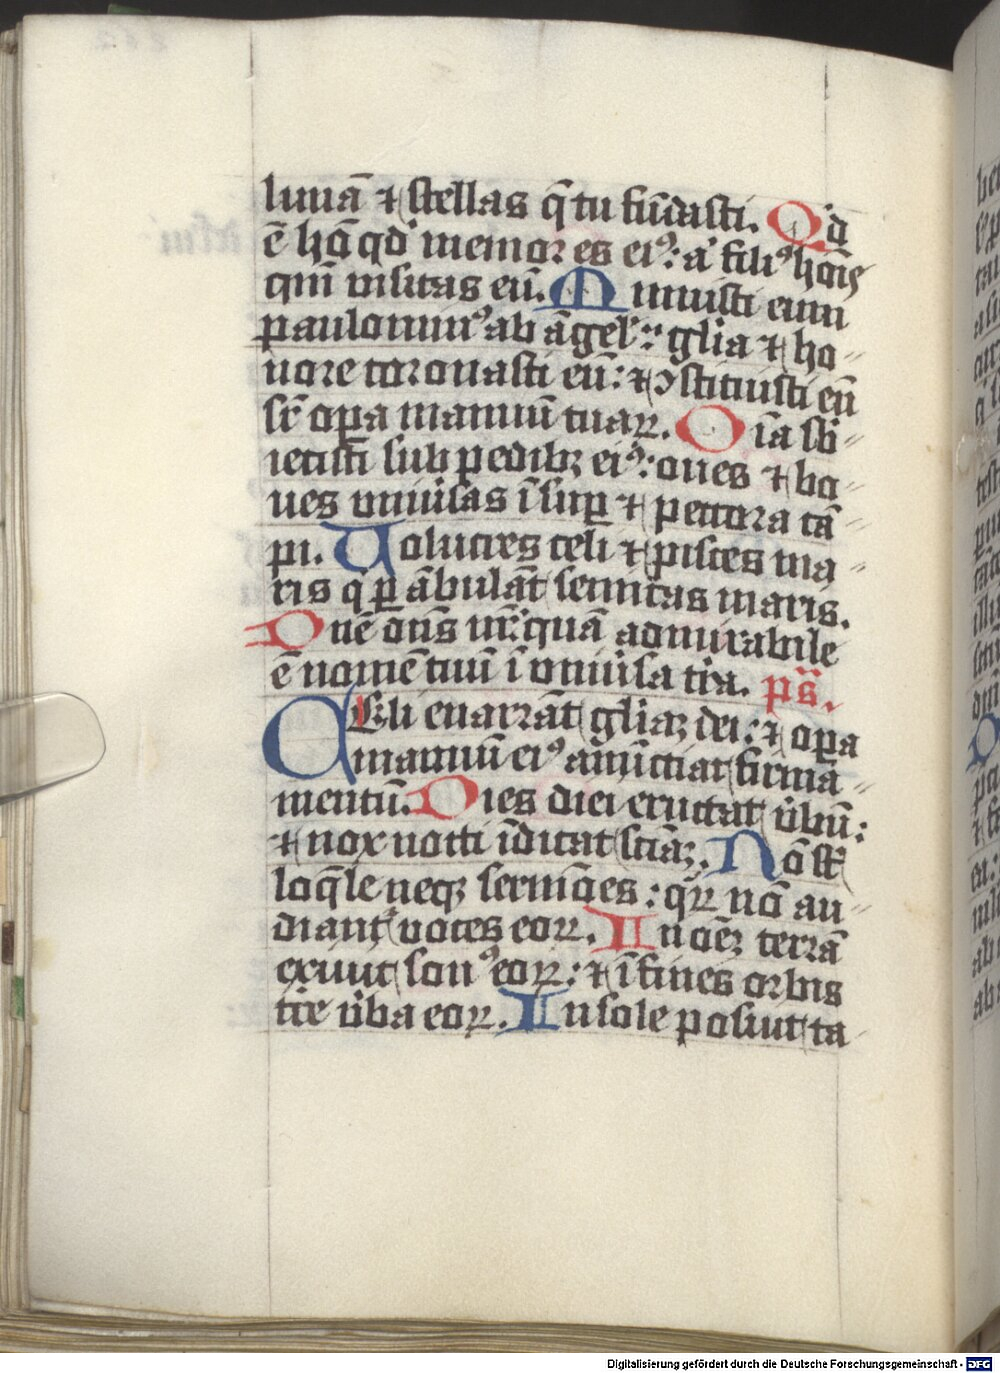 lunā ⁊ stellas q̄ tu fūdasti. Qⁱd
ē hō qd' memor es eiꝰ: aͭ filiꝰ hōīs
qm̄ visitas eū. Minuisti eum
paulominꝰ ab āgel': glīa ⁊ ho-
nore coronasti eū: ⁊ ꝯstituisti eū
sr̄ oꝑa manuū tuaꝝ. Oīa sb̄-
iecisti sub pedibꝫ eiꝰ: oues ⁊ bo-
ues vniu'sas īsuꝑ ⁊ peccora cā-
pi. Uolucres celi ⁊ pisces ma-
ris q' ꝑābulāt semitas maris.
Dn̄e dn̄s nr̄: quā admirabile
ē nomē tuū ī vniu'sa tr̄a. ps̄.
Celi enarrāt gl̄iaꝫ dei: ⁊ oꝑa
manuū eiꝰ anūctiat firma-
mentū. Dies diei eructat v̄bū:
⁊ nox nocti īdicat sciāꝫ. Nō st̄
loq̄le neqꝫ sermōes: qꝝ nō au-
diant᷑ voces eoꝝ. In oēꝫ terrā
exiuit sonꝰ eoꝝ: ⁊ ī fines orbis
tr̄e v̄ba eoꝝ. In sole posuit ta-
Digitalisierung gefördert durch die Deutsche Forschungsgemeinschaft - DFG